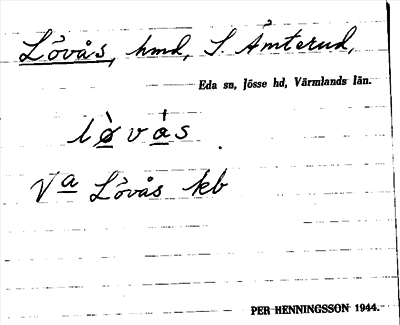 Lövås, hmd, S. Åmterud,
Eda sn, Jösse hd, Värmlands län.
lø̀vás.
Va Lövås kb
PER HENNINGSSON 1944.